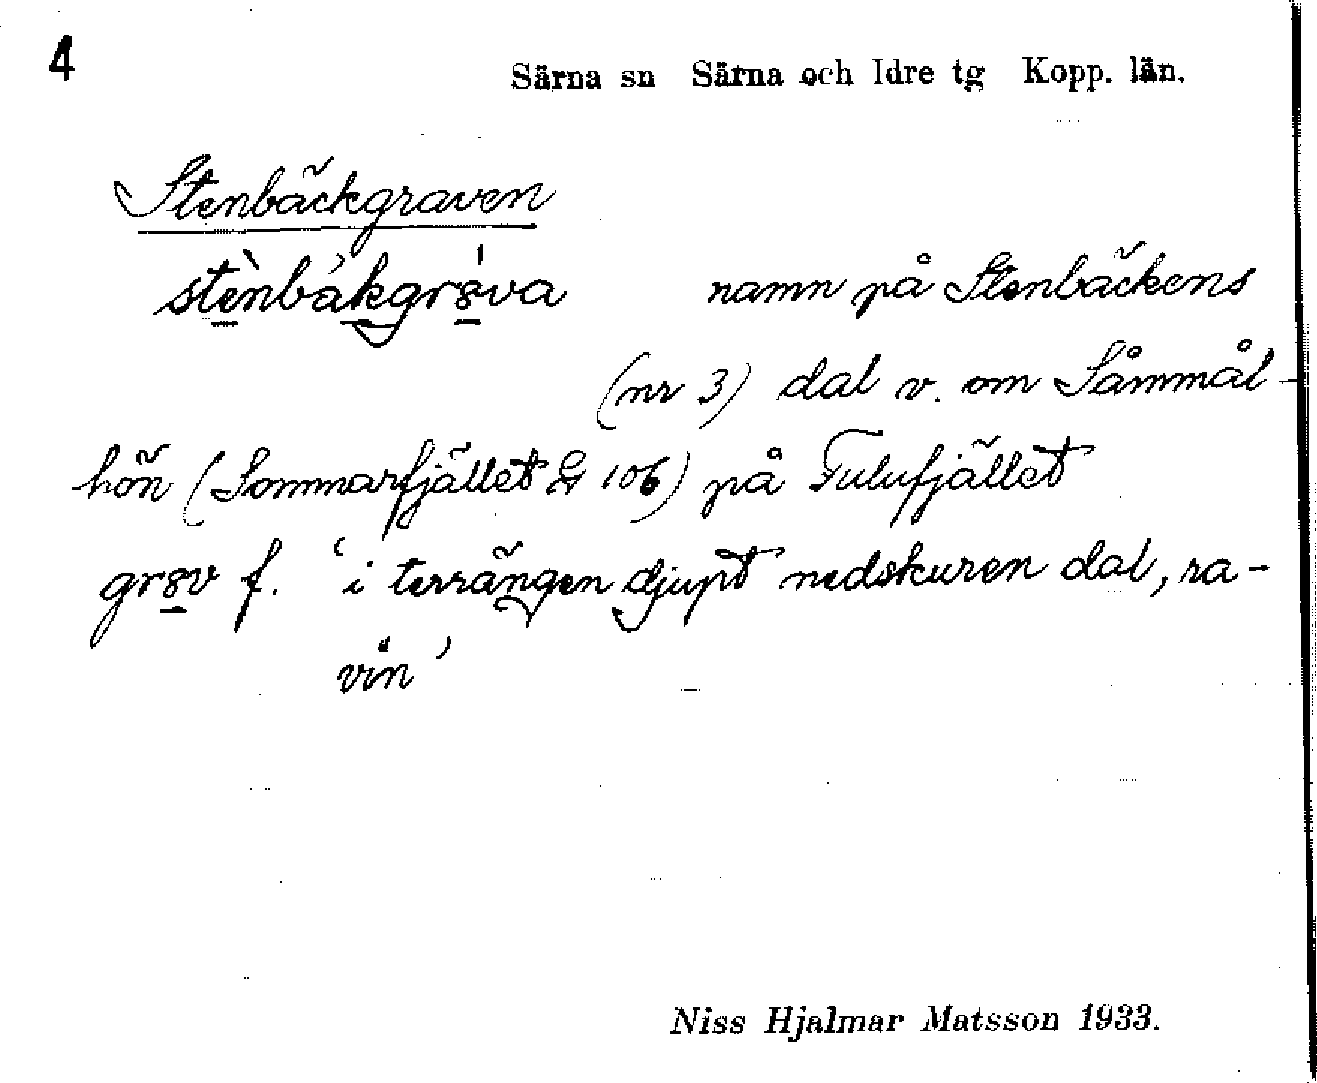 4
Särna sn Särna och Idre tg Kopp. län.
Stenbäckgraven
stènbàkgrǻva namn på Stenbäckens
(nr 3) dal v. om Såmmål-
hön (Sommarfjället G 106) på Fulufjället
grov f. 'i terrängen djupt nedskuren dal, ra-
vin'
Niss Hjalmar Matsson 1933.